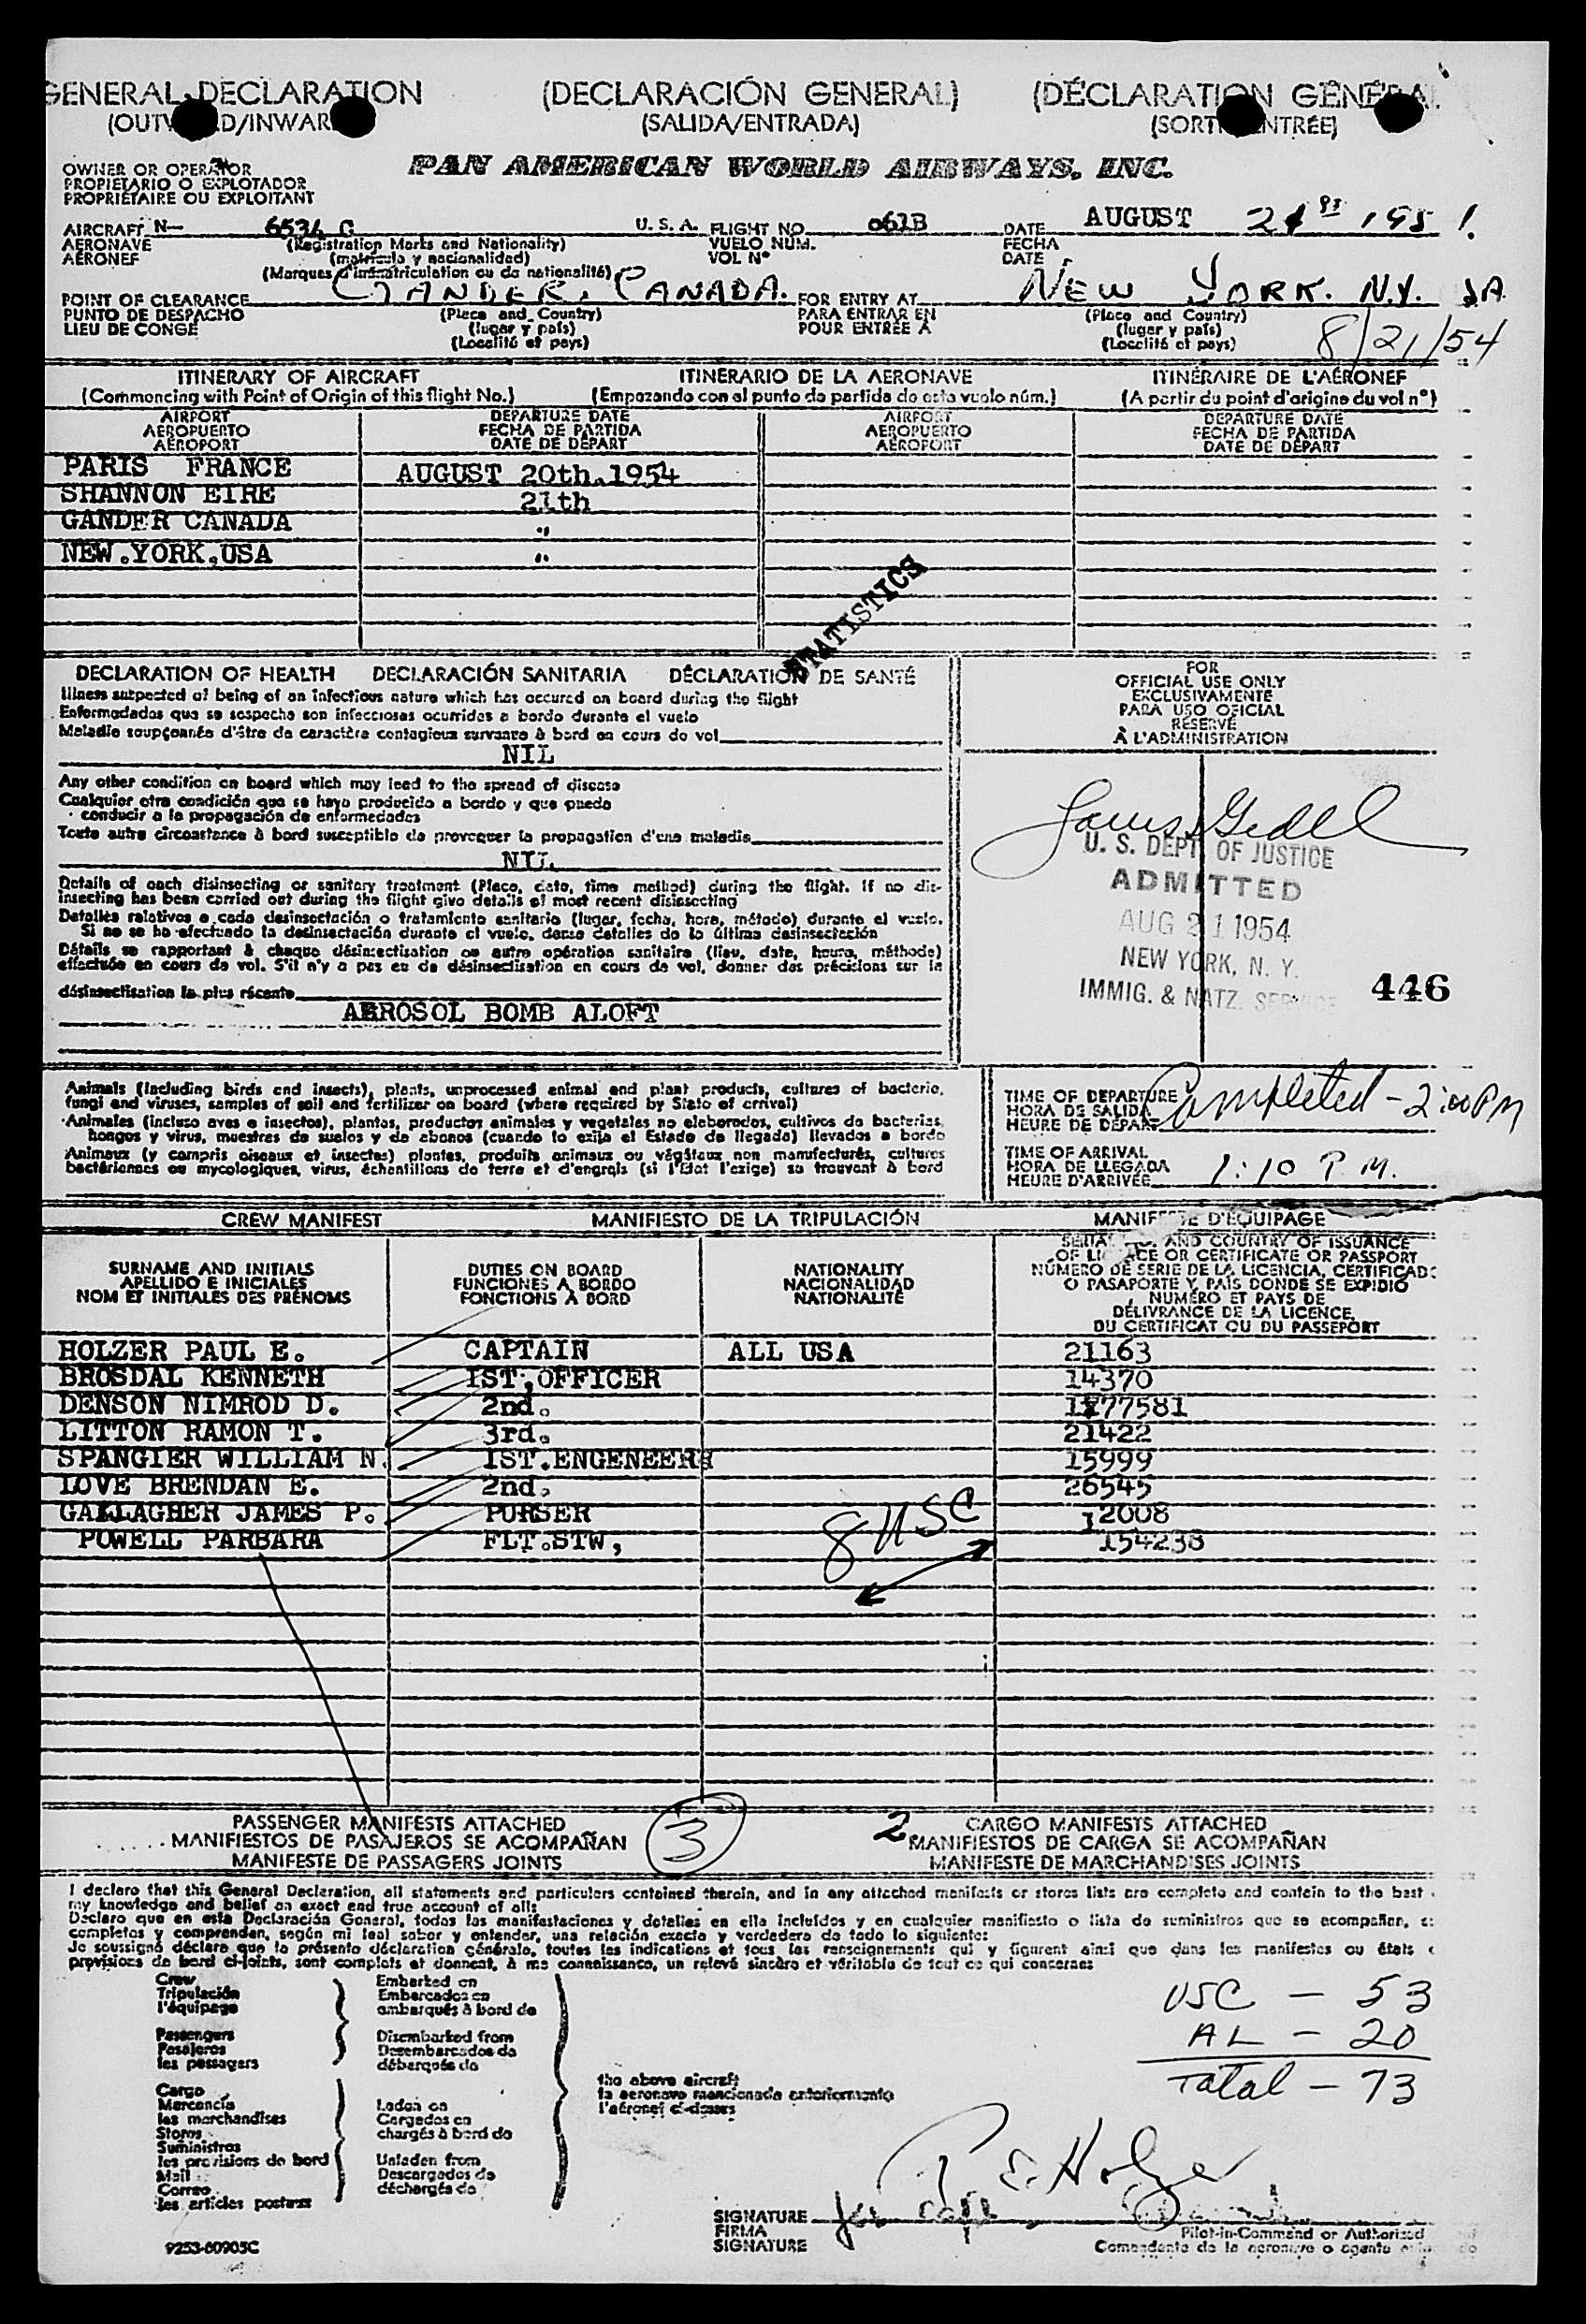 GENERAL DECLARATION (DECLARACIÓN GENERAL) (DÉCLARATION GÉNÉRA
(SALIDA/ENTRADA)
OWNER OR OPERATOR
PROPIETARIO O EXPLOTADOR
PROPRIÉTAIRE OU EXPLOITANT
PAN AMERICAN WORLD AIRWAYS, INC.
AIRCRAFT N— U.S.A. FLIGHT NO. 061B DATE AUGUST
AERONAVE (Registration Marks and Nationality) VUELO NÚM. FECHA
AÉRONEF (matrícula y nacionalidad) VOL Nº DATE
(Marques d'immatriculation ou de nationalité)
POINT OF CLEARANCE GANDER, CANADA. FOR ENTRY AT NEW YORK. N.Y.
PUNTO DE DESPACHO (Place and Country) PARA ENTRAR EN (Place and Country)
LIEU DE CONGÉ (lugar y país) POUR ENTRÉE À (lugar y país)
(Localité et pays) (Localité et pays) 8/21/54
ITINERARY OF AIRCRAFT ITINERARIO DE LA AERONAVE ITINÉRAIRE DE L'AÉRONEF
(Commencing with Point of Origin of this flight No.) (Empezando con el punto de partida de este vuelo núm.) (A partir du point d'origine du vol nº)
AIRPORT DEPARTURE DATE AIRPORT DEPARTURE DATE
AEROPUERTO FECHA DE PARTIDA AEROPUERTO FECHA DE PARTIDA
AÉROPORT DATE DE DÉPART AÉROPORT DATE DE DÉPART
PARIS FRANCE AUGUST 20th.1954
SHANNON EIRE 21th
GANDER CANADA "
NEW.YORK,USA "
STATISTICS
DECLARATION OF HEALTH DECLARACIÓN SANITARIA DÉCLARATION DE SANTÉ
Illness suspected of being of an infectious nature which has occured on board during the flight
Enfermedades que se sospecha son infecciosas ocurridas a bordo durante el vuelo
Maladie soupçonnée d'être de caractère contagieux survenue à bord en cours de vol
NIL
Any other condition on board which may lead to the spread of disease
Cualquier otra condición que se haya producido a bordo y que pueda
conducir a la propagación de enfermedades
Toute autre circonstance à bord susceptible de provoquer la propagation d'une maladie
NIL
Details of each disinsecting or sanitary treatment (Place, date, time method) during the flight. If no dis-
insecting has been carried out during the flight give details of most recent disinsecting
Detalles relativos a cada desinsectación o tratamiento sanitario (lugar, fecha, hora, método) durante el vuelo.
Si no se ha efectuado la desinsectación durante el vuelo, dense detalles de la última desinsectación
Détails se rapportant à chaque désinsectisation ou autre opération sanitaire (lieu, date, heure, méthode)
effectuée en cours de vol. S'il n'y a pas eu de désinsectisation en cours de vol, donner des précisions sur la
désinsectisation la plus récente
AEROSOL BOMB ALOFT
FOR
OFFICIAL USE ONLY
EXCLUSIVAMENTE
PARA USO OFICIAL
RÉSERVÉ
À L'ADMINISTRATION
U. S. DEPT. OF JUSTICE
ADMITTED
AUG 21 1954
NEW YORK, N. Y.
IMMIG. & NATZ. SERVICE
446
Animals (including birds and insects), plants, unprocessed animal and plant products, cultures of bacteria,
fungi and viruses, samples of soil and fertilizer on board (where required by State of arrival)
Animales (incluso aves e insectos), plantas, productos animales y vegetales no elaborados, cultivos de bacterias,
hongos y virus, muestras de suelos y de abonos (cuando lo exija el Estado de llegada) llevados a bordo
Animaux (y compris oiseaux et insectes) plantes, produits animaux ou végétaux non manufacturés, cultures
bactériennes ou mycologiques, virus, échantillons de terre et d'engrais (si l'État l'exige) se trouvant à bord
TIME OF DEPARTURE
HORA DE SALIDA
HEURE DE DÉPART
Completed - 2:00 PM
TIME OF ARRIVAL
HORA DE LLEGADA
HEURE D'ARRIVÉE
1:10 P.M.
CREW MANIFEST MANIFIESTO DE LA TRIPULACIÓN MANIFESTE D'ÉQUIPAGE
SURNAME AND INITIALS
APELLIDO E INICIALES
NOM ET INITIALES DES PRÉNOMS
DUTIES ON BOARD
FUNCIONES A BORDO
FONCTIONS À BORD
NATIONALITY
NACIONALIDAD
NATIONALITÉ
SERIAL NO. AND COUNTRY OF ISSUANCE
OF LICENCE OR CERTIFICATE OR PASSPORT
NÚMERO DE SERIE DE LA LICENCIA, CERTIFICADO
O PASAPORTE Y PAÍS DONDE SE EXPIDIÓ
NUMÉRO ET PAYS DE
DÉLIVRANCE DE LA LICENCE,
DU CERTIFICAT OU DU PASSEPORT
HOLZER PAUL E. CAPTAIN ALL USA 21163
BROSDAL KENNETH IST,OFFICER 14370
DENSON NIMROD D. 2nd. 1277581
LITTON RAMON T. 3rd. 21422
SPANGIER WILLIAM N. IST.ENGENEER 15999
LOVE BRENDAN E. 2nd. 26545
GALLAGHER JAMES P. PURSER 12008
POWELL PARBARA FLT.STW, 154238
8 USC
PASSENGER MANIFESTS ATTACHED
MANIFIESTOS DE PASAJEROS SE ACOMPAÑAN
MANIFESTE DE PASSAGERS JOINTS
3
2 CARGO MANIFESTS ATTACHED
MANIFIESTOS DE CARGA SE ACOMPAÑAN
MANIFESTE DE MARCHANDISES JOINTS
I declare that this General Declaration, all statements and particulars contained therein, and in any attached manifests or stores lists are complete and contain to the best
my knowledge and belief an exact and true account of all:
Declaro que en esta Declaración General, todas las manifestaciones y detalles en ella incluídos y en cualquier manifiesto o lista de suministros que se acompañan,
completos y comprenden, según mi leal saber y entender, una relación exacta y verdadera de todo lo siguiente:
Je soussigné déclare que la présente déclaration générale, toutes les indications et tous les renseignements qui y figurent ainsi que dans les manifestes ou états
provisions de bord ci-joints, sont complets et donnent, à ma connaissance, un relevé sincère et véritable de tout ce qui concerne:
Crew
Tripulación
l'équipage
Passengers
Pasajeros
les passagers
Embarked on
Embarcados en
embarqués à bord de
Disembarked from
Desembarcados de
débarqués de
Cargo
Mercancía
les marchandises
Stores
Suministros
les provisions de bord
Mail
Correo
les articles postaux
Laden on
Cargados en
chargés à bord de
Unladen from
Descargados de
déchargés de
the above aircraft
la aeronave mencionada anteriormente
l'aéronef ci-dessus
USC - 53
AL - 20
Total - 73
P E. Holzer
SIGNATURE
FIRMA
SIGNATURE
Pilot-in-Command or Authorized
Comandante de la aeronave o agente
9253-60905C